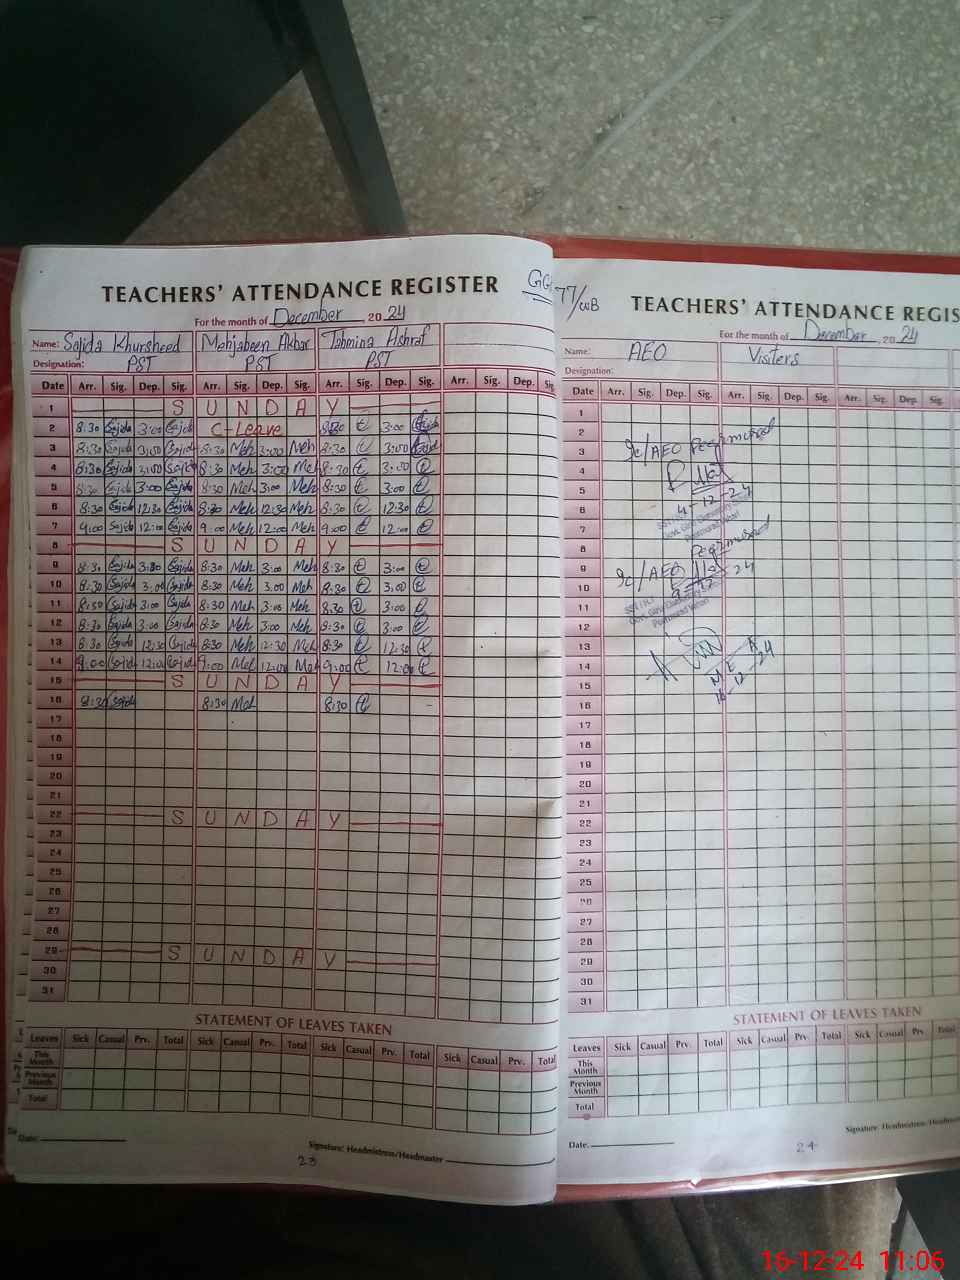 TEACHERS' ATTENDANCE REGISTER
For the month of December 2024
Name: Sajida Khursheed Mehjabeen Akbar Tahmina Ashraf
Designation: PST PST PST
Date Arr. Sig. Dep. Sig. Arr. Sig. Dep. Sig. Arr. Sig. Dep. Sig. Arr. Sig. Dep. Sig.
1 SUNDAY
2 8:30 Sajida 3:00 Sajida C-Leave 8:30 t 3:00
3 8:30 Sajida 3:00 Sajida 8:30 Meh 3:00 Meh 8:30 t 3:00
4 8:30 Sajida 3:00 Sajida 8:30 Meh 3:00 Meh 8:30 t 3:00 t
5 8:30 Sajida 3:00 Sajida 8:30 Meh 3:00 Meh 8:30 t 3:00 t
6 8:30 Sajida 12:30 Sajida 8:30 Meh 12:30 Meh 8:30 t 12:30 t
7 9:00 Sajida 12:00 Sajida 9:00 Meh 12:00 Meh 9:00 t 12:00 t
8 SUNDAY
9 8:30 Sajida 3:00 Sajida 8:30 Meh 3:00 Meh 8:30 t 3:00 t
10 8:30 Sajida 3:00 Sajida 8:30 Meh 3.00 Meh 8:30 t 3.00 t
11 8:30 Sajida 3:00 Sajida 8:30 Meh 3:00 Meh 8:30 t 3:00 t
12 8:30 Sajida 3:00 Sajida 8:30 Meh 3:00 Meh 8:30 t 3:00 t
13 8:30 Sajida 12:30 Sajida 8:30 Meh 12:30 Meh 8:30 t 12:30 t
14 9:00 Sajida 12:00 Sajida 9:00 Meh 12:00 Meh 9:00 t 12:00 t
15 SUNDAY
16 8:30 Sajida 8:30 Meh 8:30 t
17
18
19
20
21
22 SUNDAY
23
24
25
26
27
28
29 SUNDAY
30
31
STATEMENT OF LEAVES TAKEN
Leaves Sick Casual Prv. Total Sick Casual Prv. Total Sick Casual Prv. Total
This Month
Previous Month
Total
Date:
Signature: Headmistress/Headmaster
23
77/WB
TEACHERS' ATTENDANCE REGIS
For the month of December 2024
Name: AEO Visiters
Designation:
Date Arr. Sig. Dep. Sig. Arr. Sig. Dep. Sig. Arr. Sig. Dep. Sig.
1
2
3 Ic/AEO
4
5 4-12-24
6
7
8
9 Ic/AEO
10 9-12-24
11
12
13
14
15 MEA
16 16-12-24
17
18
19
20
21
22
23
24
25
26
27
28
29
30
31
STATEMENT OF LEAVES TAKEN
Leaves Sick Casual Prv. Total Sick Casual Prv. Total Sick Casual Prv. Total
This Month
Previous Month
Total
Date:
Signature: Headmistress/Headmas
24
16-12-24 11:06